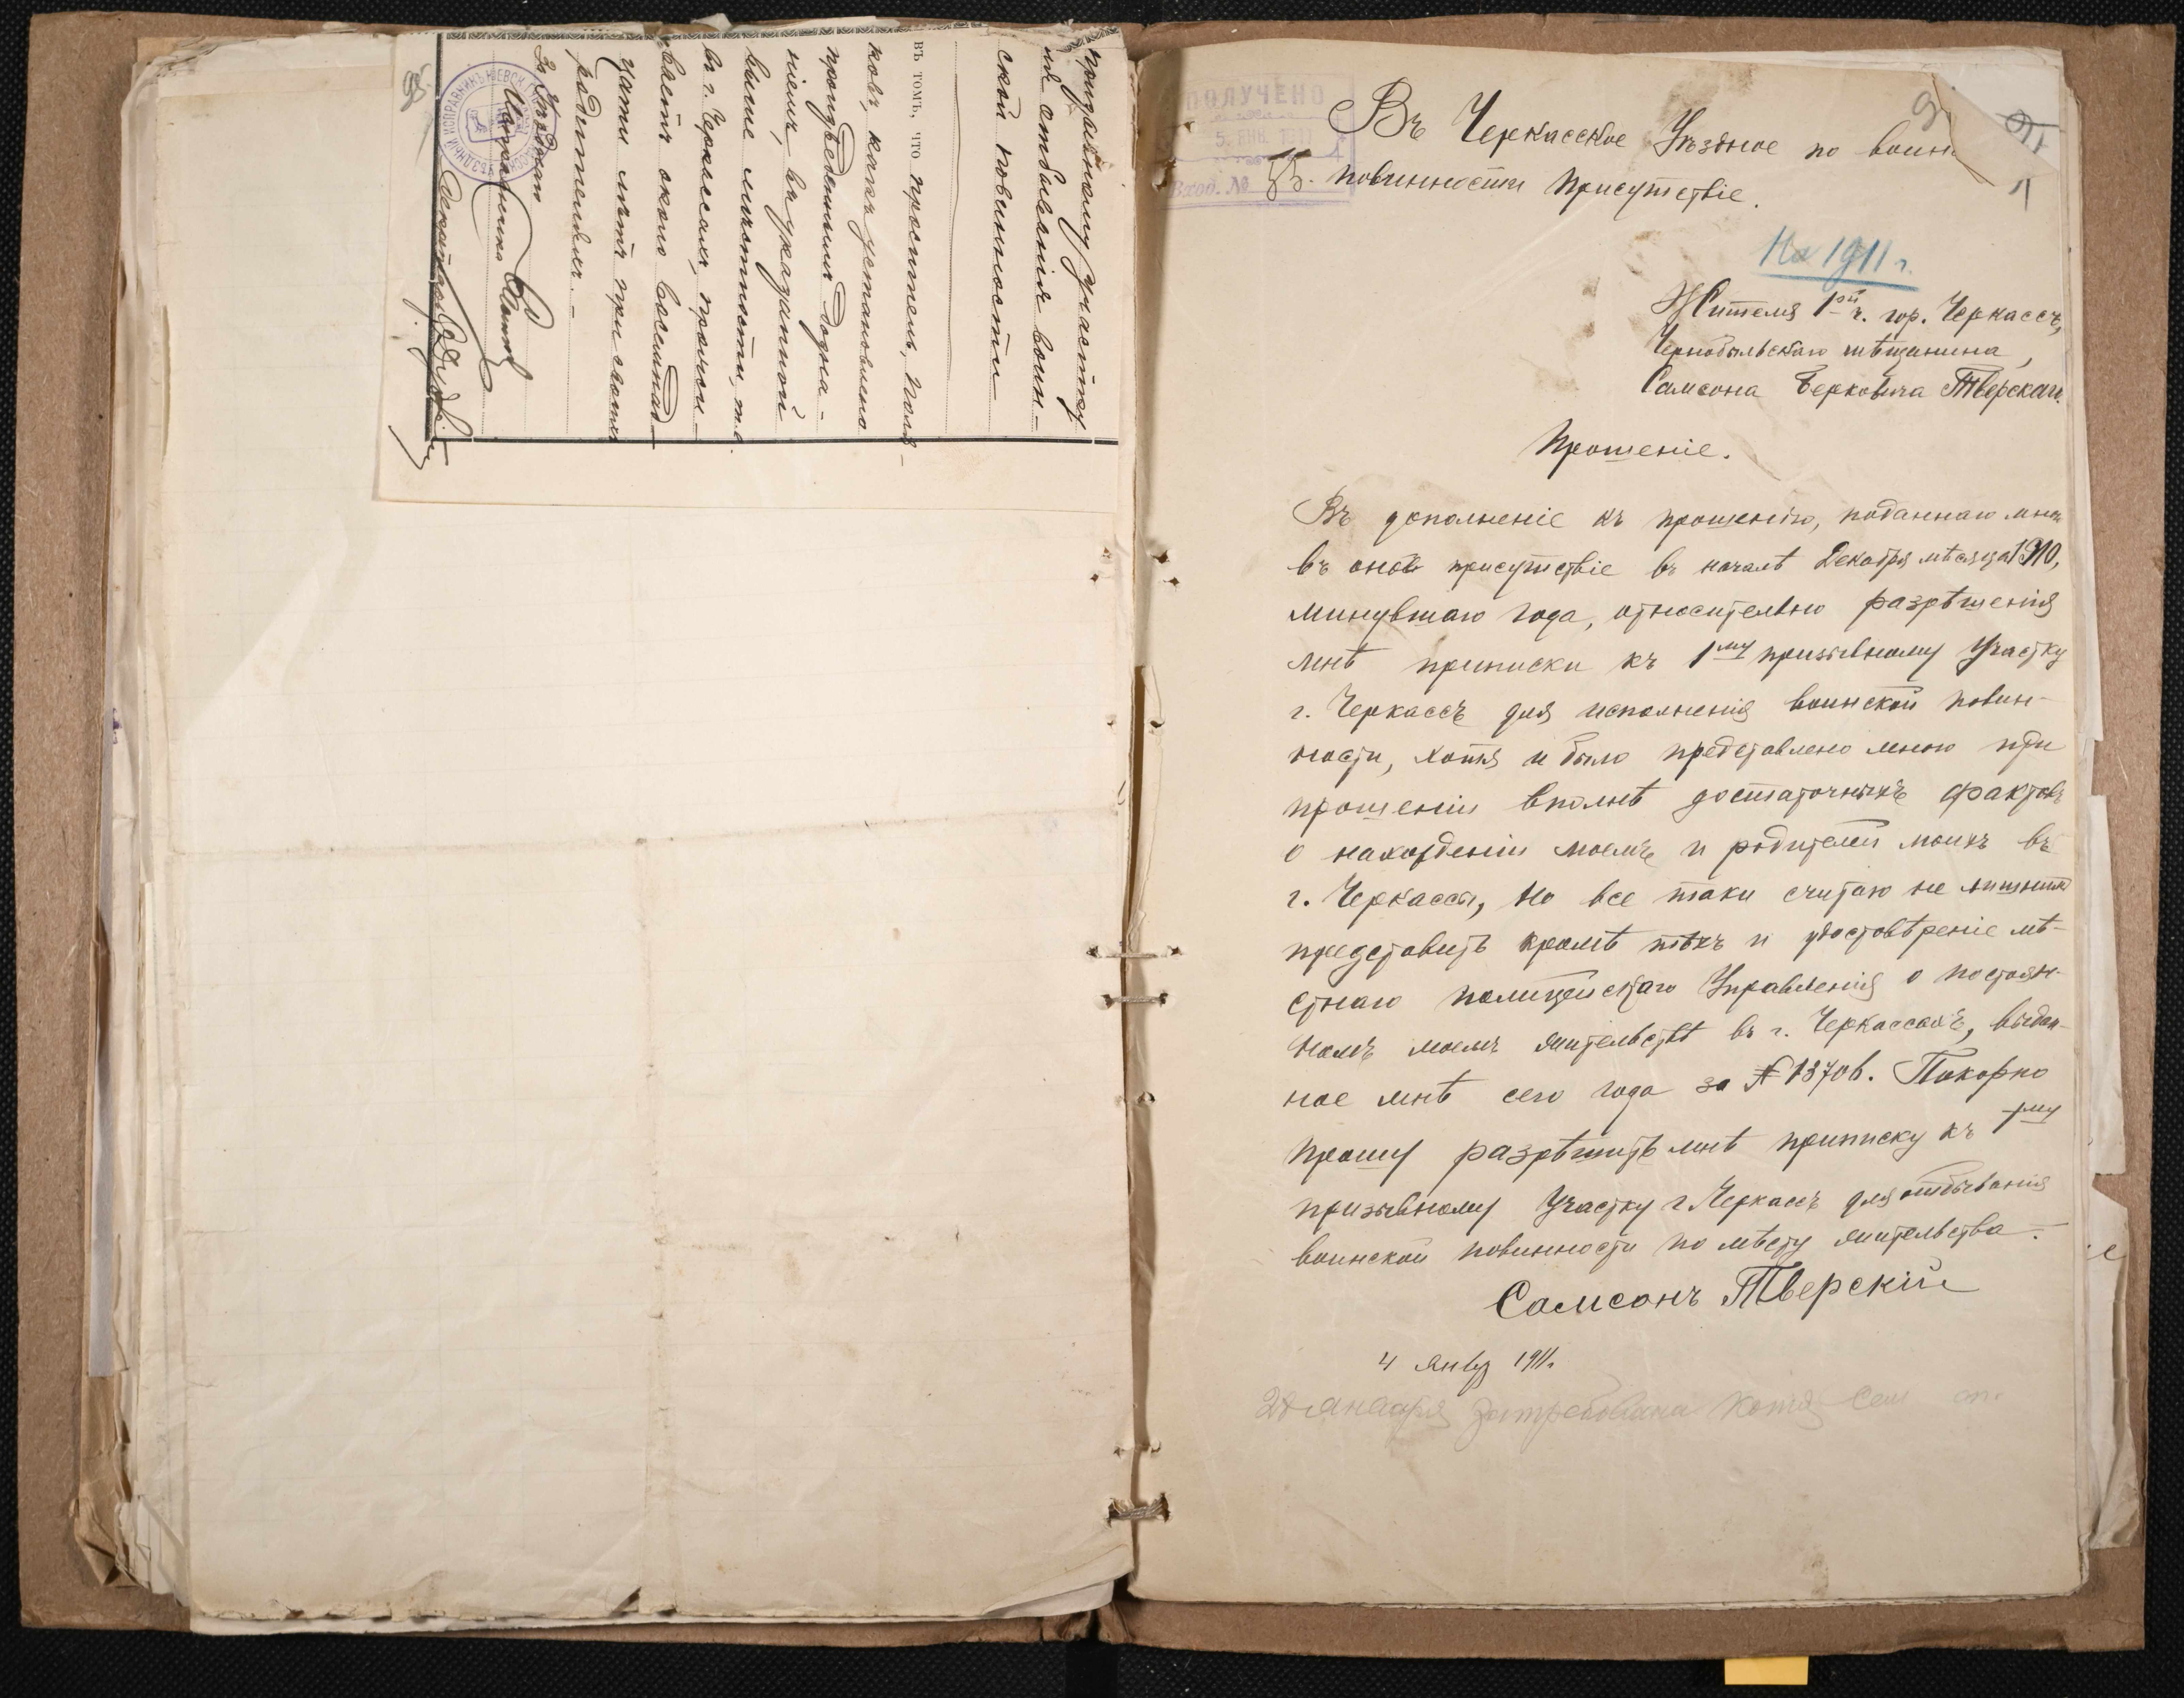 призывному участку
для отбыванія воин-
ской повинности
въ томъ, что проситель, Поля-
ковъ, какъ установлено
произведеннымъ дозна-
ніемъ, въ указанной
выше мѣстности, т.е.
въ г. Черкассахъ, прожи-
ваетъ около восемнад-
цати лѣтъ при своихъ
родителяхъ.
За Уѣзднаго
Исправника
Секретарь
ПОЛУЧЕНО
5. ЯНВ. 1911
Вход. № 55.
Въ Черкасское Уѣздное по воин
повинности Присутствіе.
На 1911 г.
Жителя 1ой ч. гор. Черкассъ,
Чернобыльскаго мѣщанина,
Самсона Берковича Тверскаго.
Прошеніе.
Въ дополненіе къ прошенію, поданнаго мною
въ оное присутствіе въ началѣ Декабря мѣсяца 1910,
минувшаго года, относительно разрѣшенія
мнѣ приписки къ 1му призывному участку
г. Черкассъ для исполненія воинской повин-
ности, хотя и было представлено мною при
прошеніи вполнѣ достаточныхъ фактовъ
о нахожденіи моемъ и родителей моихъ въ
г. Черкассы, но все таки считаю не лишнимъ
представить кромѣ тѣхъ и удостовѣреніе мѣ-
стнаго полицейскаго Управленія о постоян-
номъ моемъ жительствѣ въ г. Черкассахъ, выдан-
ное мнѣ сего года за № 13706. Покорно
прошу разрѣшить мнѣ приписку къ 1му
призывному участку г. Черкассъ для отбыванія
воинской повинности по мѣсту жительства.
Самсонъ Тверскій
4 янвр 1911.
28 января затребована копія